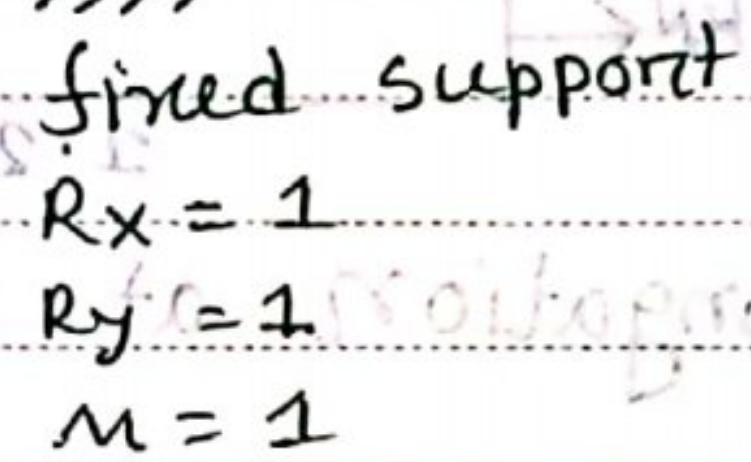 fixed support
Rx = 1
Ry = 1
M = 1